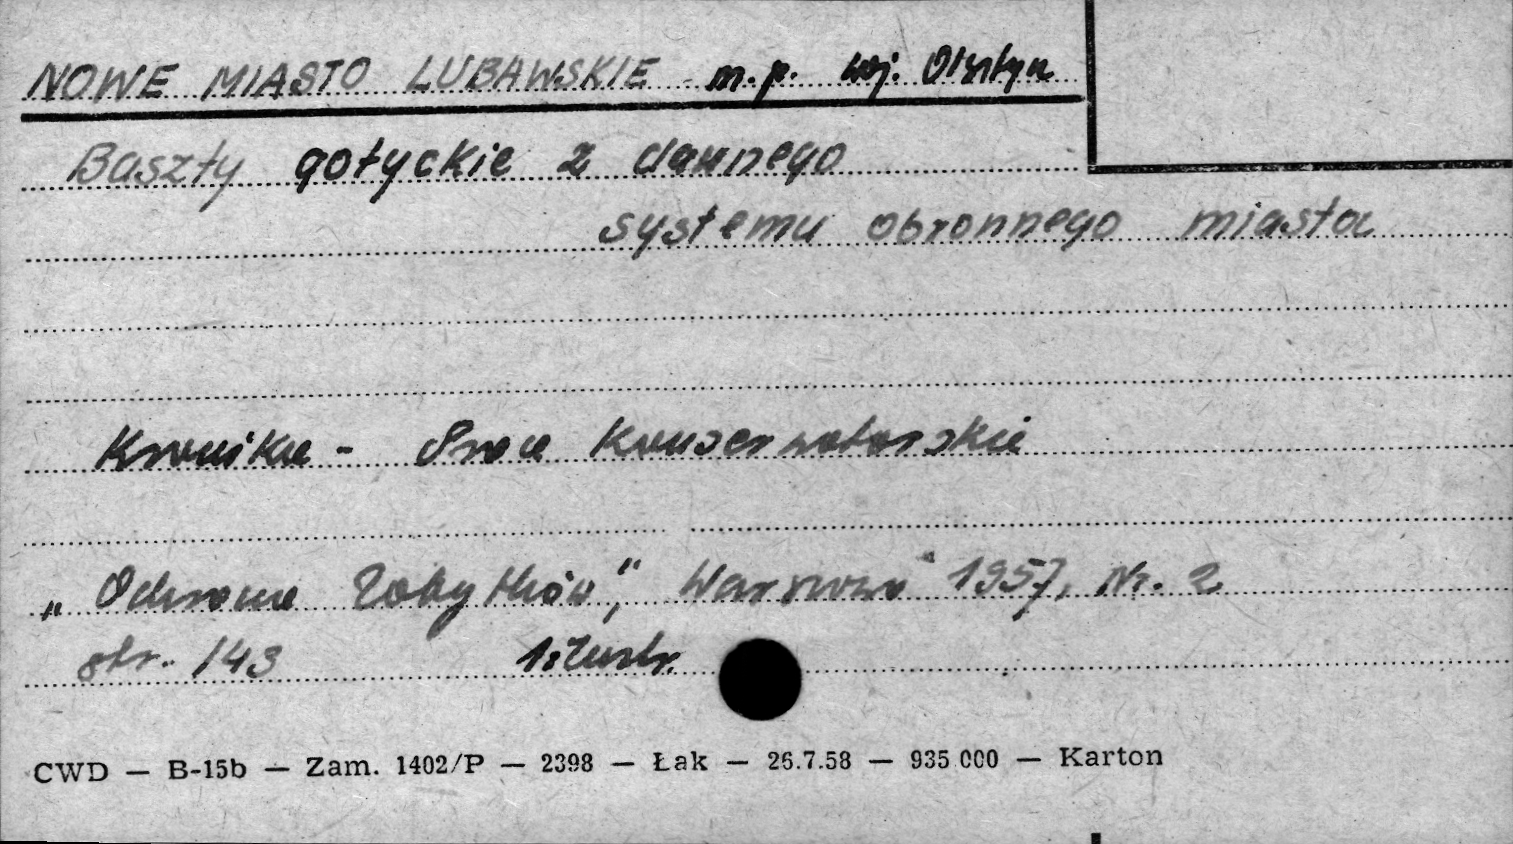 NOWE MIASTO LUBAWSKIE m.p. woj. Olsztyn
Baszty gotyckie z dawnego
systemu obronnego miasta
Kronika - Prace Konserwatorskie
„Ochrona Zabytków", Warszawa 1957, Nr. 2
str. 143 1 ilustr.
CWD — B-15b — Zam. 1402/P — 2398 — Łak — 26.7.58 — 935 000 — Karton